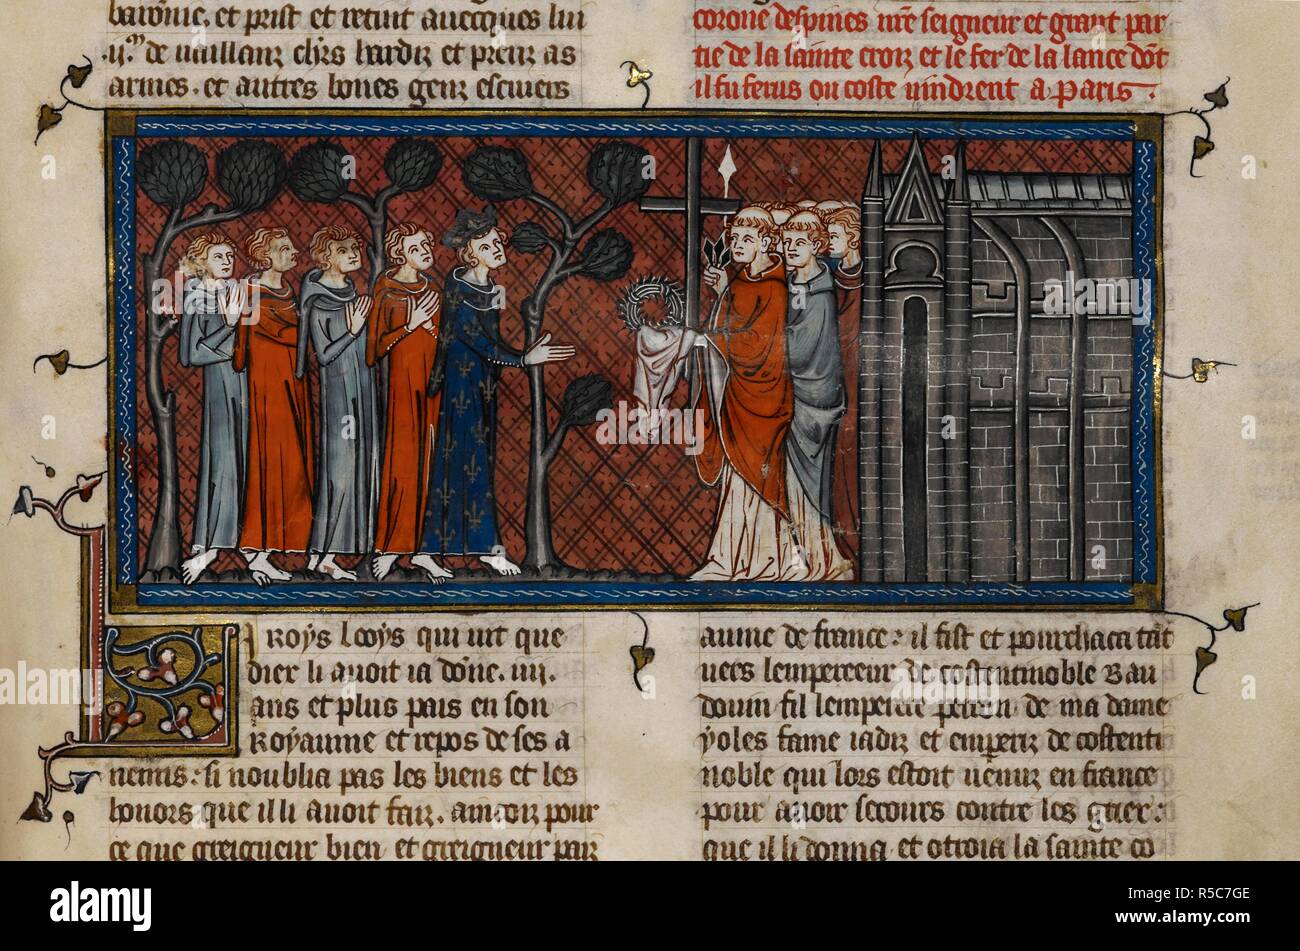 baronie, et prist et retint avecques lui
.ij.ᵐ de vaillanz chrs hardiz et preuz as
armes. et autres bones genz escuiers
corone despines nre seigneur et grant par
tie de la sainte croiz et le fer de la lance dōt
il fu ferus ou coste vindrent a Paris.
Li Roys Looys qui vit que
dieu li avoit ia dōne .iiij.
ans et plus pais en son
Royaume et repos de ses a
nemis: si noublia pas les biens et les
honors que il li avoit faiz. aincoiz pour
ce que greigneur bien et greigneur pai
aume de france: il fist et pourchaca tāt
vers lempereeur de costentinoble Bau
douin fil lempereeur perron de ma dame
yoles fame iadiz et emperiz de costenti
noble qui lors estoit venuz en france
pour avoir secours contre les griex:
que il li donna et otroia la sainte co
alamy
Image ID: R5C7GE
www.alamy.com